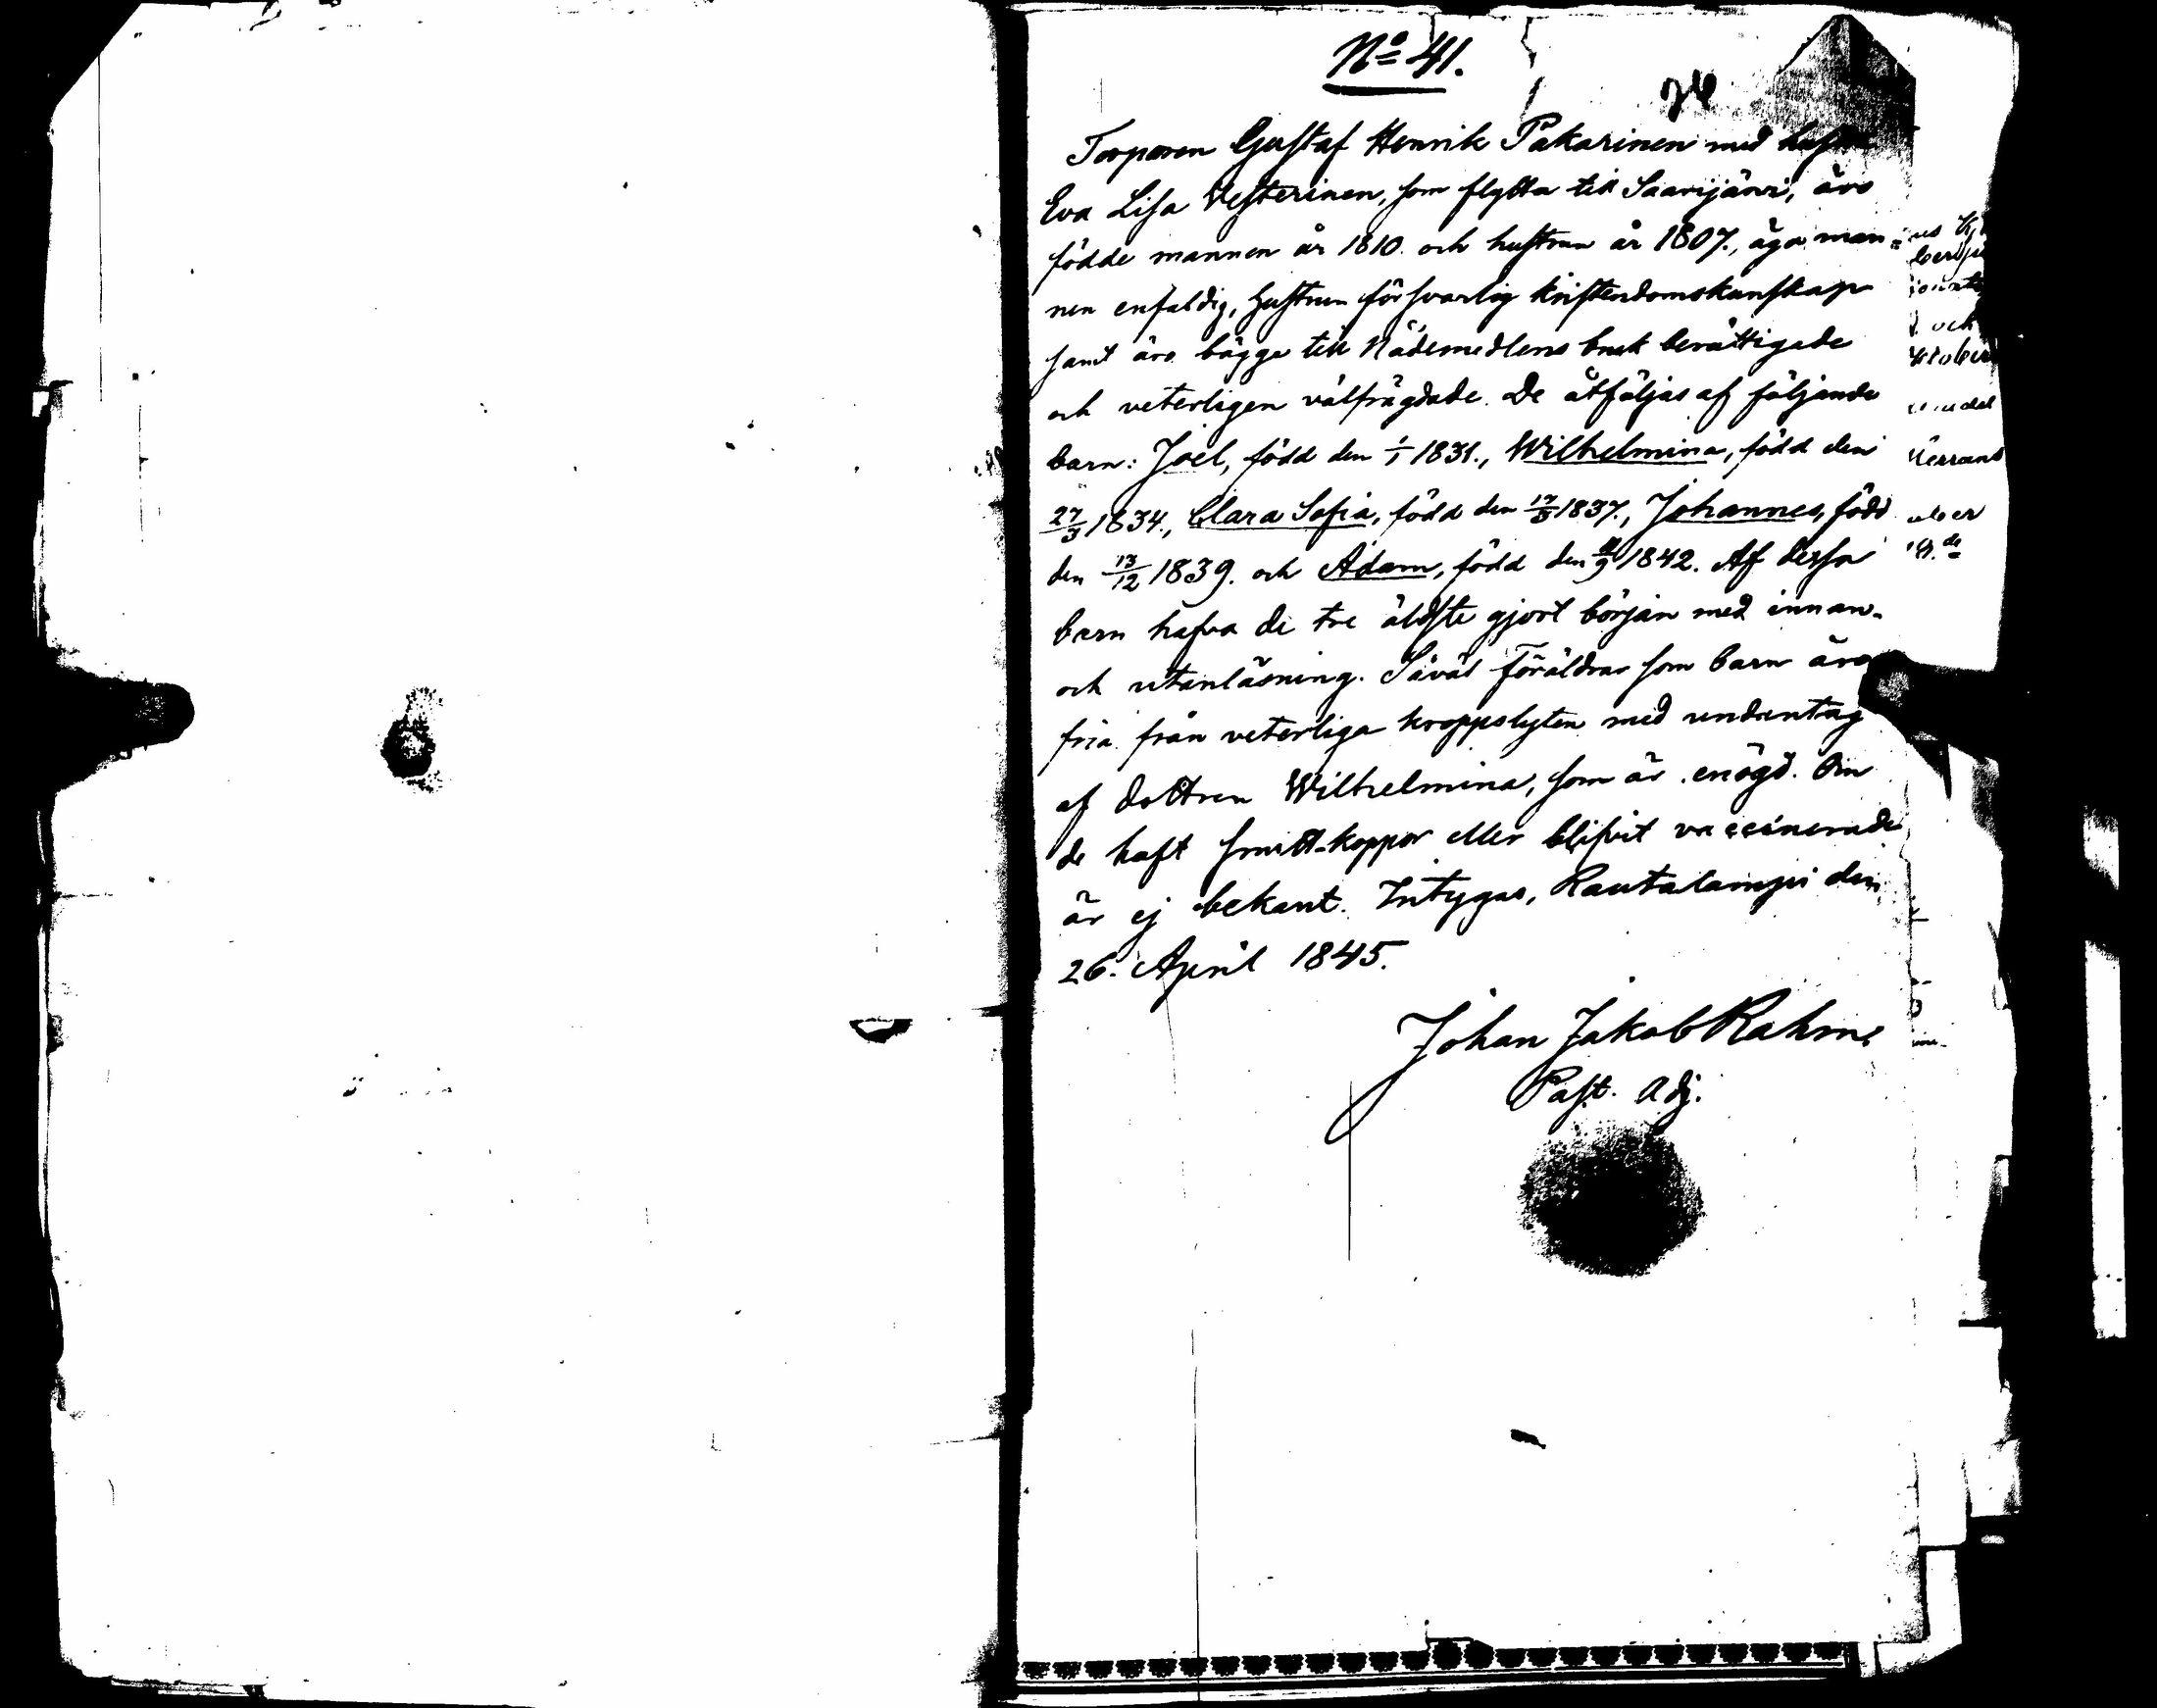 No 41.
Torparen Gustaf Henrik Pakarinen med hustru
Eva Lisa Vesterinen, som flytta till Saarijärvi, äro
födde mannen år 1810. och hustrun år 1807., äga man-
nen enfaldig, hustrun försvarlig kristendomskunskap
samt äro bägge till Nådemedlens bruk berättigade
och veterligen välfrägdade. De åtföljas af följande
barn: Joel, född den 1/1 1831., Wilhelmina, född den
27/3 1834., Clara Sofia, född den 1837., Johannes, född
den 13/12 1839. och Adam, född den 1842. Af dessa
barn hafva de tre äldste gjort början med innan-
och utanläsning. Såväl föräldrar som barn äro
fria från veterliga kroppslyten med undantag
af dottren Wilhelmina, som är enögd. Om
de haft smitt-koppor eller blifvit vaccinerade
är ej bekant. Intygas, Rautalampi den
26. April 1845.
Johan Jakob Rahm
Past. Adj.